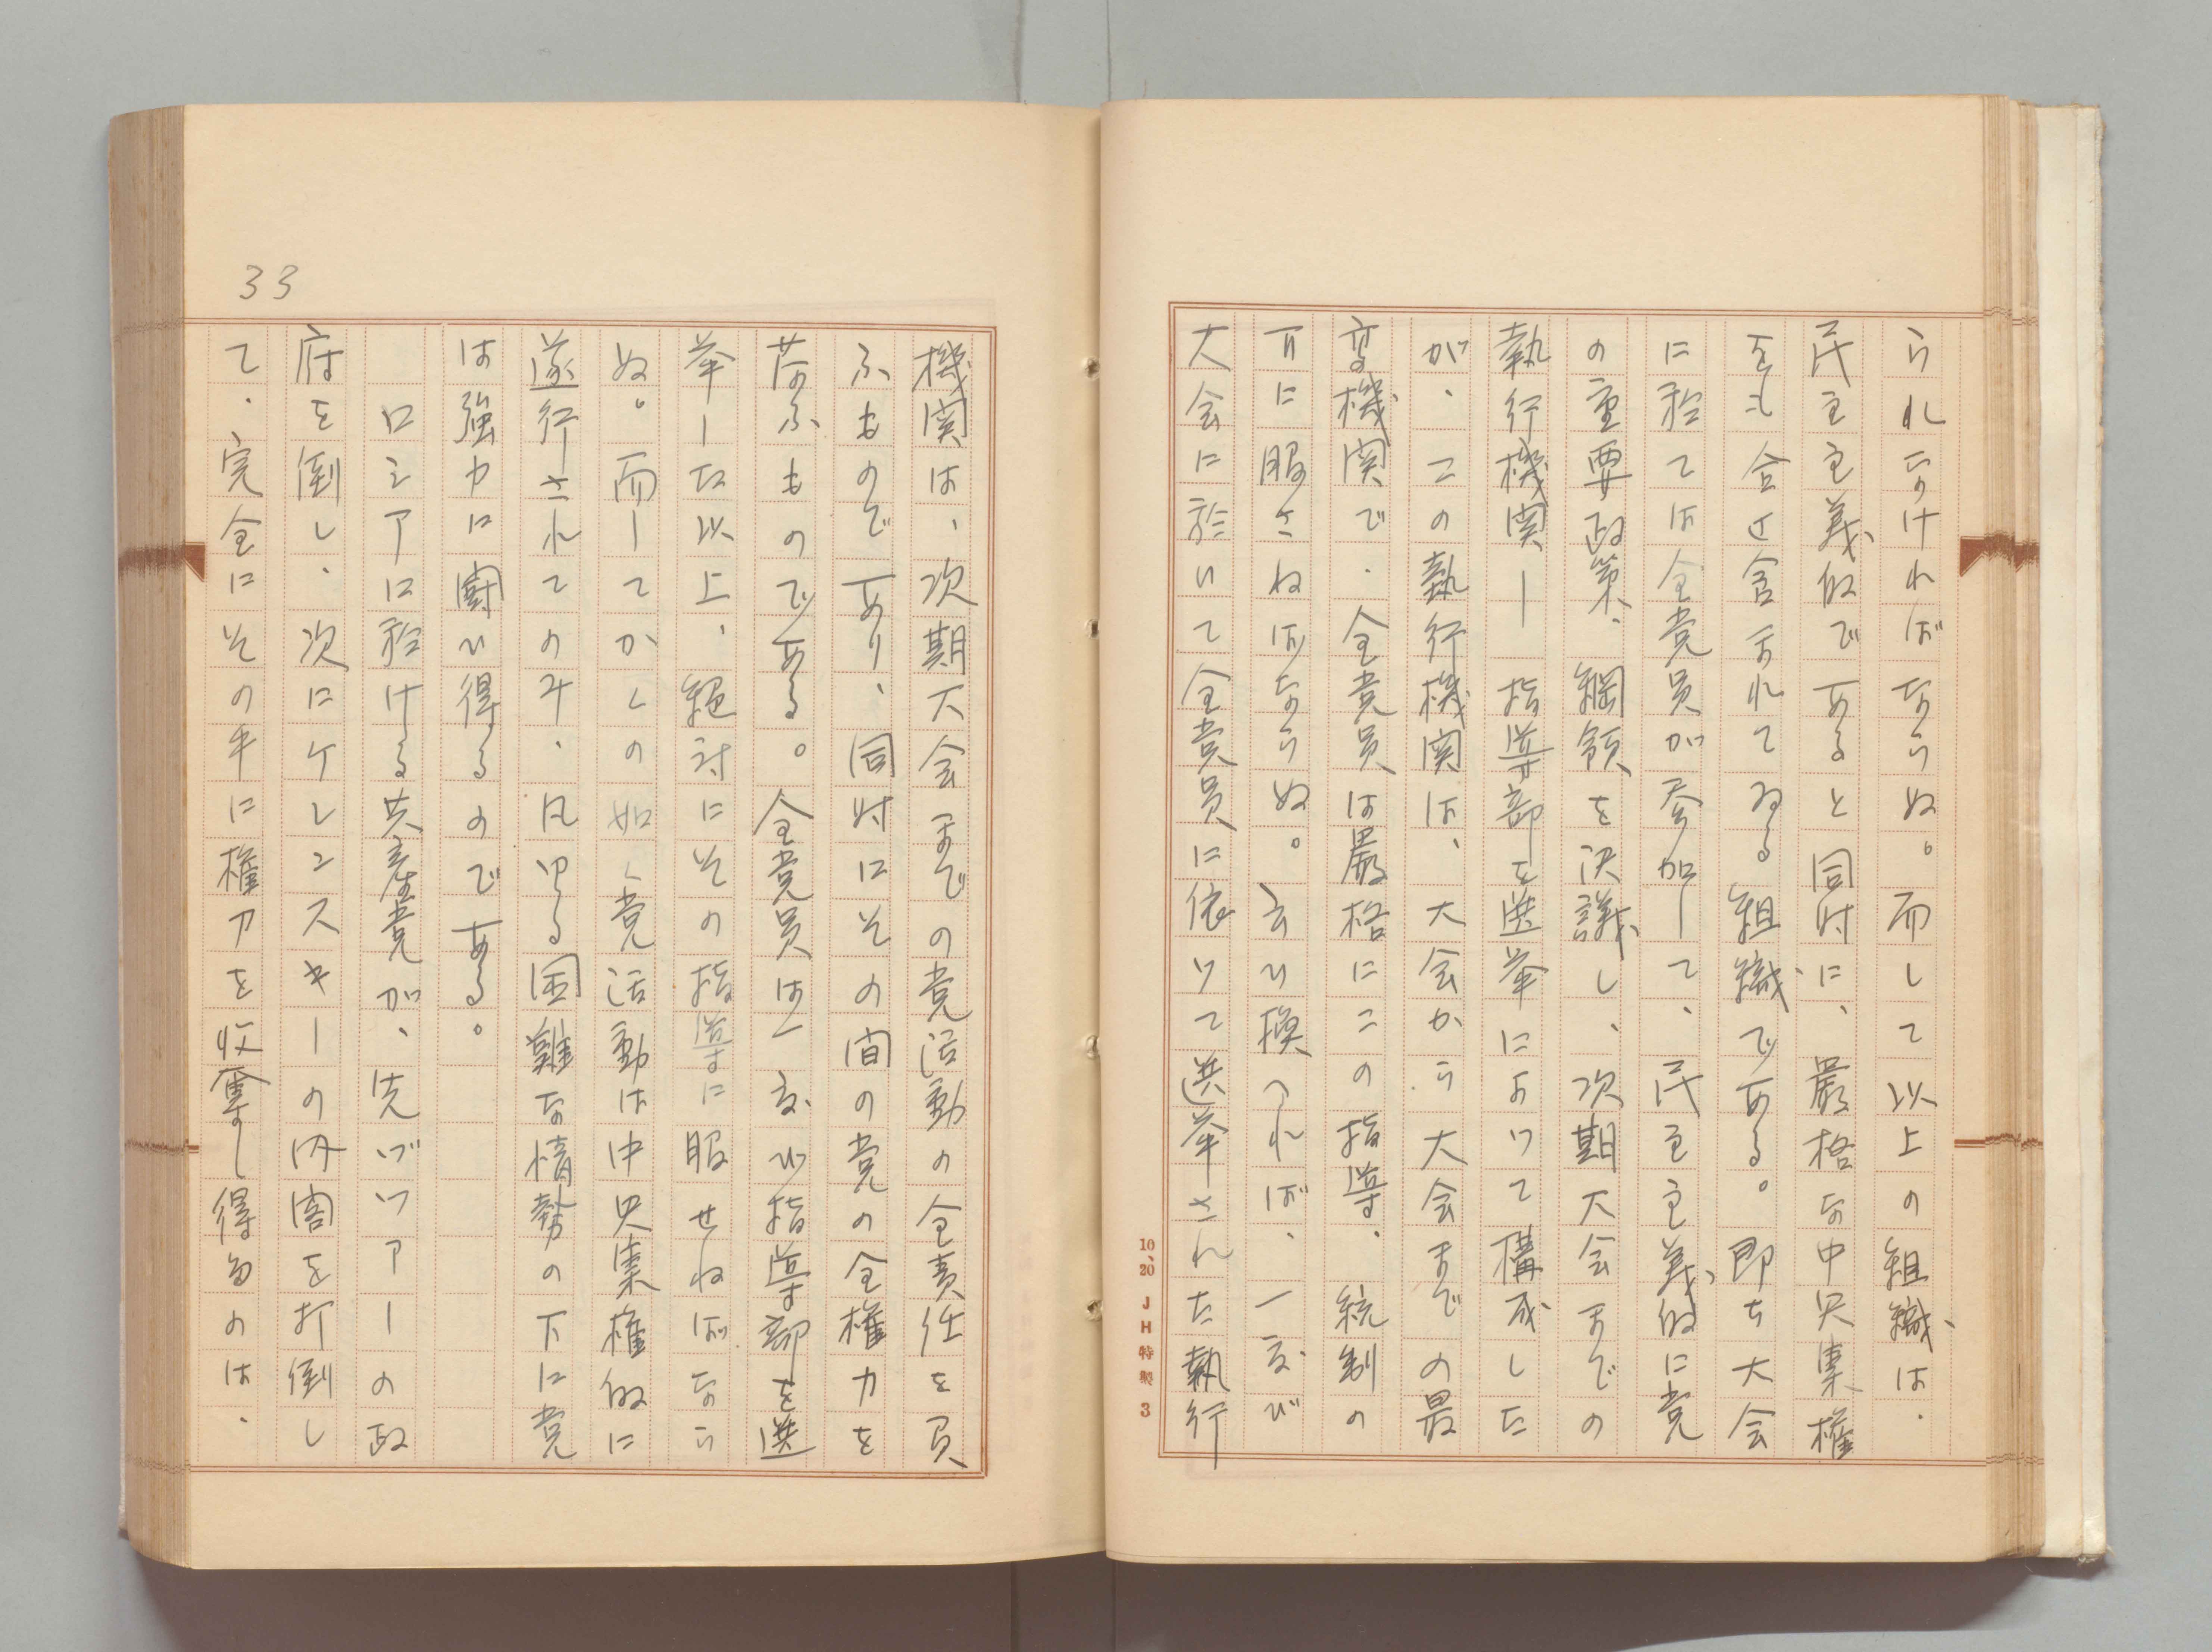 られなければならぬ。而して以上の組織は、
民主主義的であると同時に、厳格な中央集権
をも合せ含まれてゐる組織である。即ち大会
に於ては全党員が参加して、民主主義的に党
の重要政策、綱領を決議し、次期大会までの
執行機関―指導部を選挙によって構成した
が、この執行機関は、大会から大会までの最
高機関で、全党員は厳格にこの指導、統制の
下に服さねばならぬ。云ひ換へれば、一度び
大会に於いて全党員に依って選挙された執行
機関は、次期大会までの党活動の全責任を負
ふものであり、同時にその間の党の全権力を
荷ふものである。全党員は一度び指導部を選
挙した以上、絶対にその指導に服せねばなら
ぬ。而してかくの如く党活動は中央集権的に
遂行されてのみ、凡ゆる困難な情勢の下に党
は強力に闘ひ得るのである。
ロシアに於ける共産党が、先づツアーの政
府を倒し、次にケレンスキーの内閣を打倒し
て、完全にその手に権力を収奪し得たのは、
33
10、20 JH特製 3